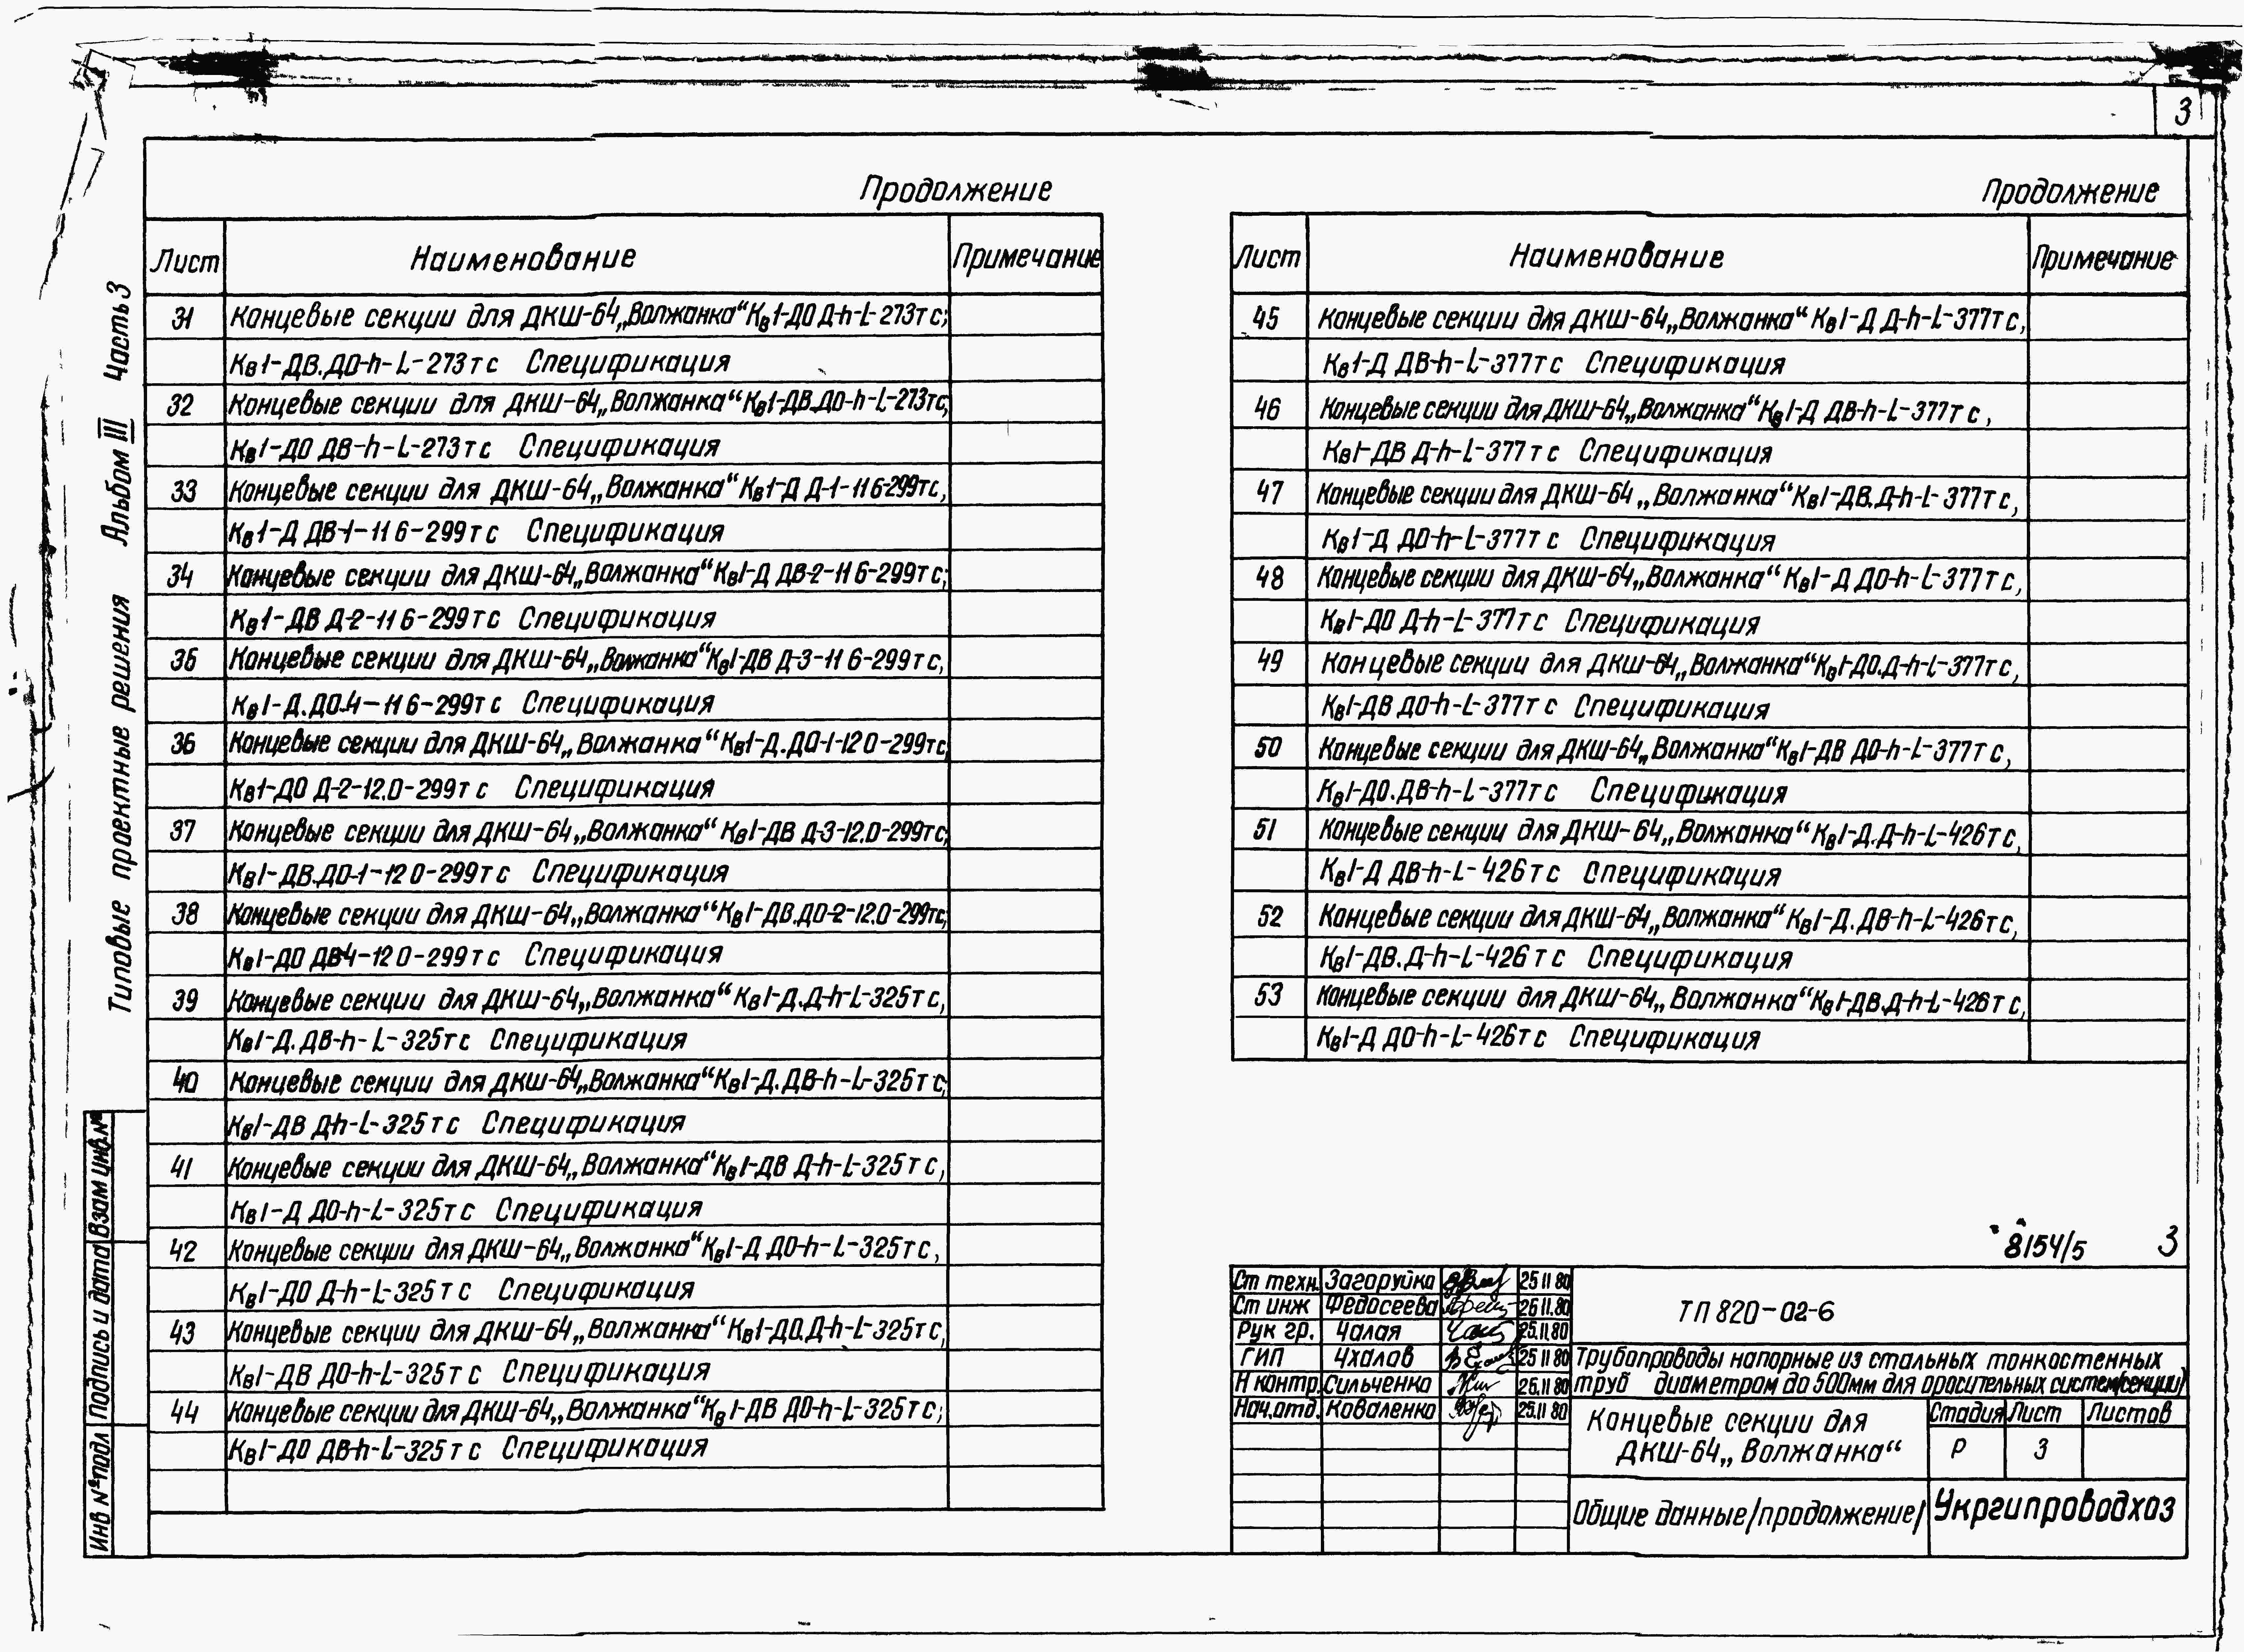 3
Типовые проектные решения Альбом III Часть 3
Продолжение
Лист Наименование Примечание
31 Концевые секции для ДКШ-64„Волжанка“ Кв1-ДО Д-h-L-273тс;
Кв1-ДВ.ДО-h-L-273тс Спецификация
32 Концевые секции для ДКШ-64„Волжанка“ Кв1-ДВ.ДО-h-L-273тс,
Кв1-ДО ДВ-h-L-273тс Спецификация
33 Концевые секции для ДКШ-64„Волжанка“ Кв1-Д Д-1-11 6-299тс,
Кв1-Д ДВ-1-11 6-299тс Спецификация
34 Концевые секции для ДКШ-64„Волжанка“ Кв1-Д ДВ-2-11 6-299тс;
Кв1-ДВ Д-2-11 6-299тс Спецификация
35 Концевые секции для ДКШ-64„Волжанка“ Кв1-ДВ Д-3-11 6-299тс,
Кв1-Д.ДО-4-11 6-299тс Спецификация
36 Концевые секции для ДКШ-64„Волжанка“ Кв1-Д.ДО-1-12 0-299тс,
Кв1-ДО Д-2-12.0-299тс Спецификация
37 Концевые секции для ДКШ-64„Волжанка“ Кв1-ДВ Д-3-12.0-299тс;
Кв1-ДВ.ДО-1-12 0-299тс Спецификация
38 Концевые секции для ДКШ-64„Волжанка“ Кв1-ДВ.ДО-2-12.0-299тс,
Кв1-ДО ДВ-4-12 0-299тс Спецификация
39 Концевые секции для ДКШ-64„Волжанка“ Кв1-Д.Д-h-L-325тс,
Кв1-Д.ДВ-h-L-325тс Спецификация
40 Концевые секции для ДКШ-64„Волжанка“ Кв1-Д.ДВ-h-L-325тс;
Кв1-ДВ Д-h-L-325тс Спецификация
41 Концевые секции для ДКШ-64„Волжанка“ Кв1-ДВ Д-h-L-325тс,
Кв1-Д ДО-h-L-325тс Спецификация
42 Концевые секции для ДКШ-64„Волжанка“ Кв1-Д ДО-h-L-325тс,
Кв1-ДО Д-h-L-325тс Спецификация
43 Концевые секции для ДКШ-64„Волжанка“ Кв1-ДО.Д-h-L-325тс,
Кв1-ДВ ДО-h-L-325тс Спецификация
44 Концевые секции для ДКШ-64„Волжанка“ Кв1-ДВ ДО-h-L-325тс;
Кв1-ДО ДВ-h-L-325тс Спецификация
Продолжение
Лист Наименование Примечание
45 Концевые секции для ДКШ-64„Волжанка“ Кв1-Д Д-h-L-377тс,
Кв1-Д ДВ-h-L-377тс Спецификация
46 Концевые секции для ДКШ-64„Волжанка“ Кв1-Д ДВ-h-L-377тс,
Кв1-ДВ Д-h-L-377тс Спецификация
47 Концевые секции для ДКШ-64„Волжанка“ Кв1-ДВ.Д-h-L-377тс,
Кв1-Д ДО-h-L-377тс Спецификация
48 Концевые секции для ДКШ-64„Волжанка“ Кв1-Д ДО-h-L-377тс,
Кв1-ДО Д-h-L-377тс Спецификация
49 Концевые секции для ДКШ-64„Волжанка“ Кв1-ДО.Д-h-L-377тс,
Кв1-ДВ ДО-h-L-377тс Спецификация
50 Концевые секции для ДКШ-64„Волжанка“ Кв1-ДВ ДО-h-L-377тс,
Кв1-ДО.ДВ-h-L-377тс Спецификация
51 Концевые секции для ДКШ-64„Волжанка“ Кв1-Д.Д-h-L-426тс,
Кв1-Д ДВ-h-L-426тс Спецификация
52 Концевые секции для ДКШ-64„Волжанка“ Кв1-Д.ДВ-h-L-426тс,
Кв1-ДВ.Д-h-L-426тс Спецификация
53 Концевые секции для ДКШ-64„Волжанка“ Кв1-ДВ.Д-h-L-426тс,
Кв1-Д ДО-h-L-426тс Спецификация
8154/5 3
Ст техн. Загоруйко 25 11 80
Ст инж Федосеева 26 11.80
Рук гр. Чалая 25.11.80
ГИП Чхалов 25 11 80
Н контр. Сильченко 25.11 80
Нач.отд. Коваленко 25.11 80
ТП 820-02-6
Трубопроводы напорные из стальных тонкостенных
труб диаметром до 500мм для оросительных систем(секции)
Концевые секции для
ДКШ-64„Волжанка“
Стадия Лист Листов
Р 3
Общие данные/продолжение/
Укргипроводхоз
Инв № подл Подпись и дата Взам инв.№